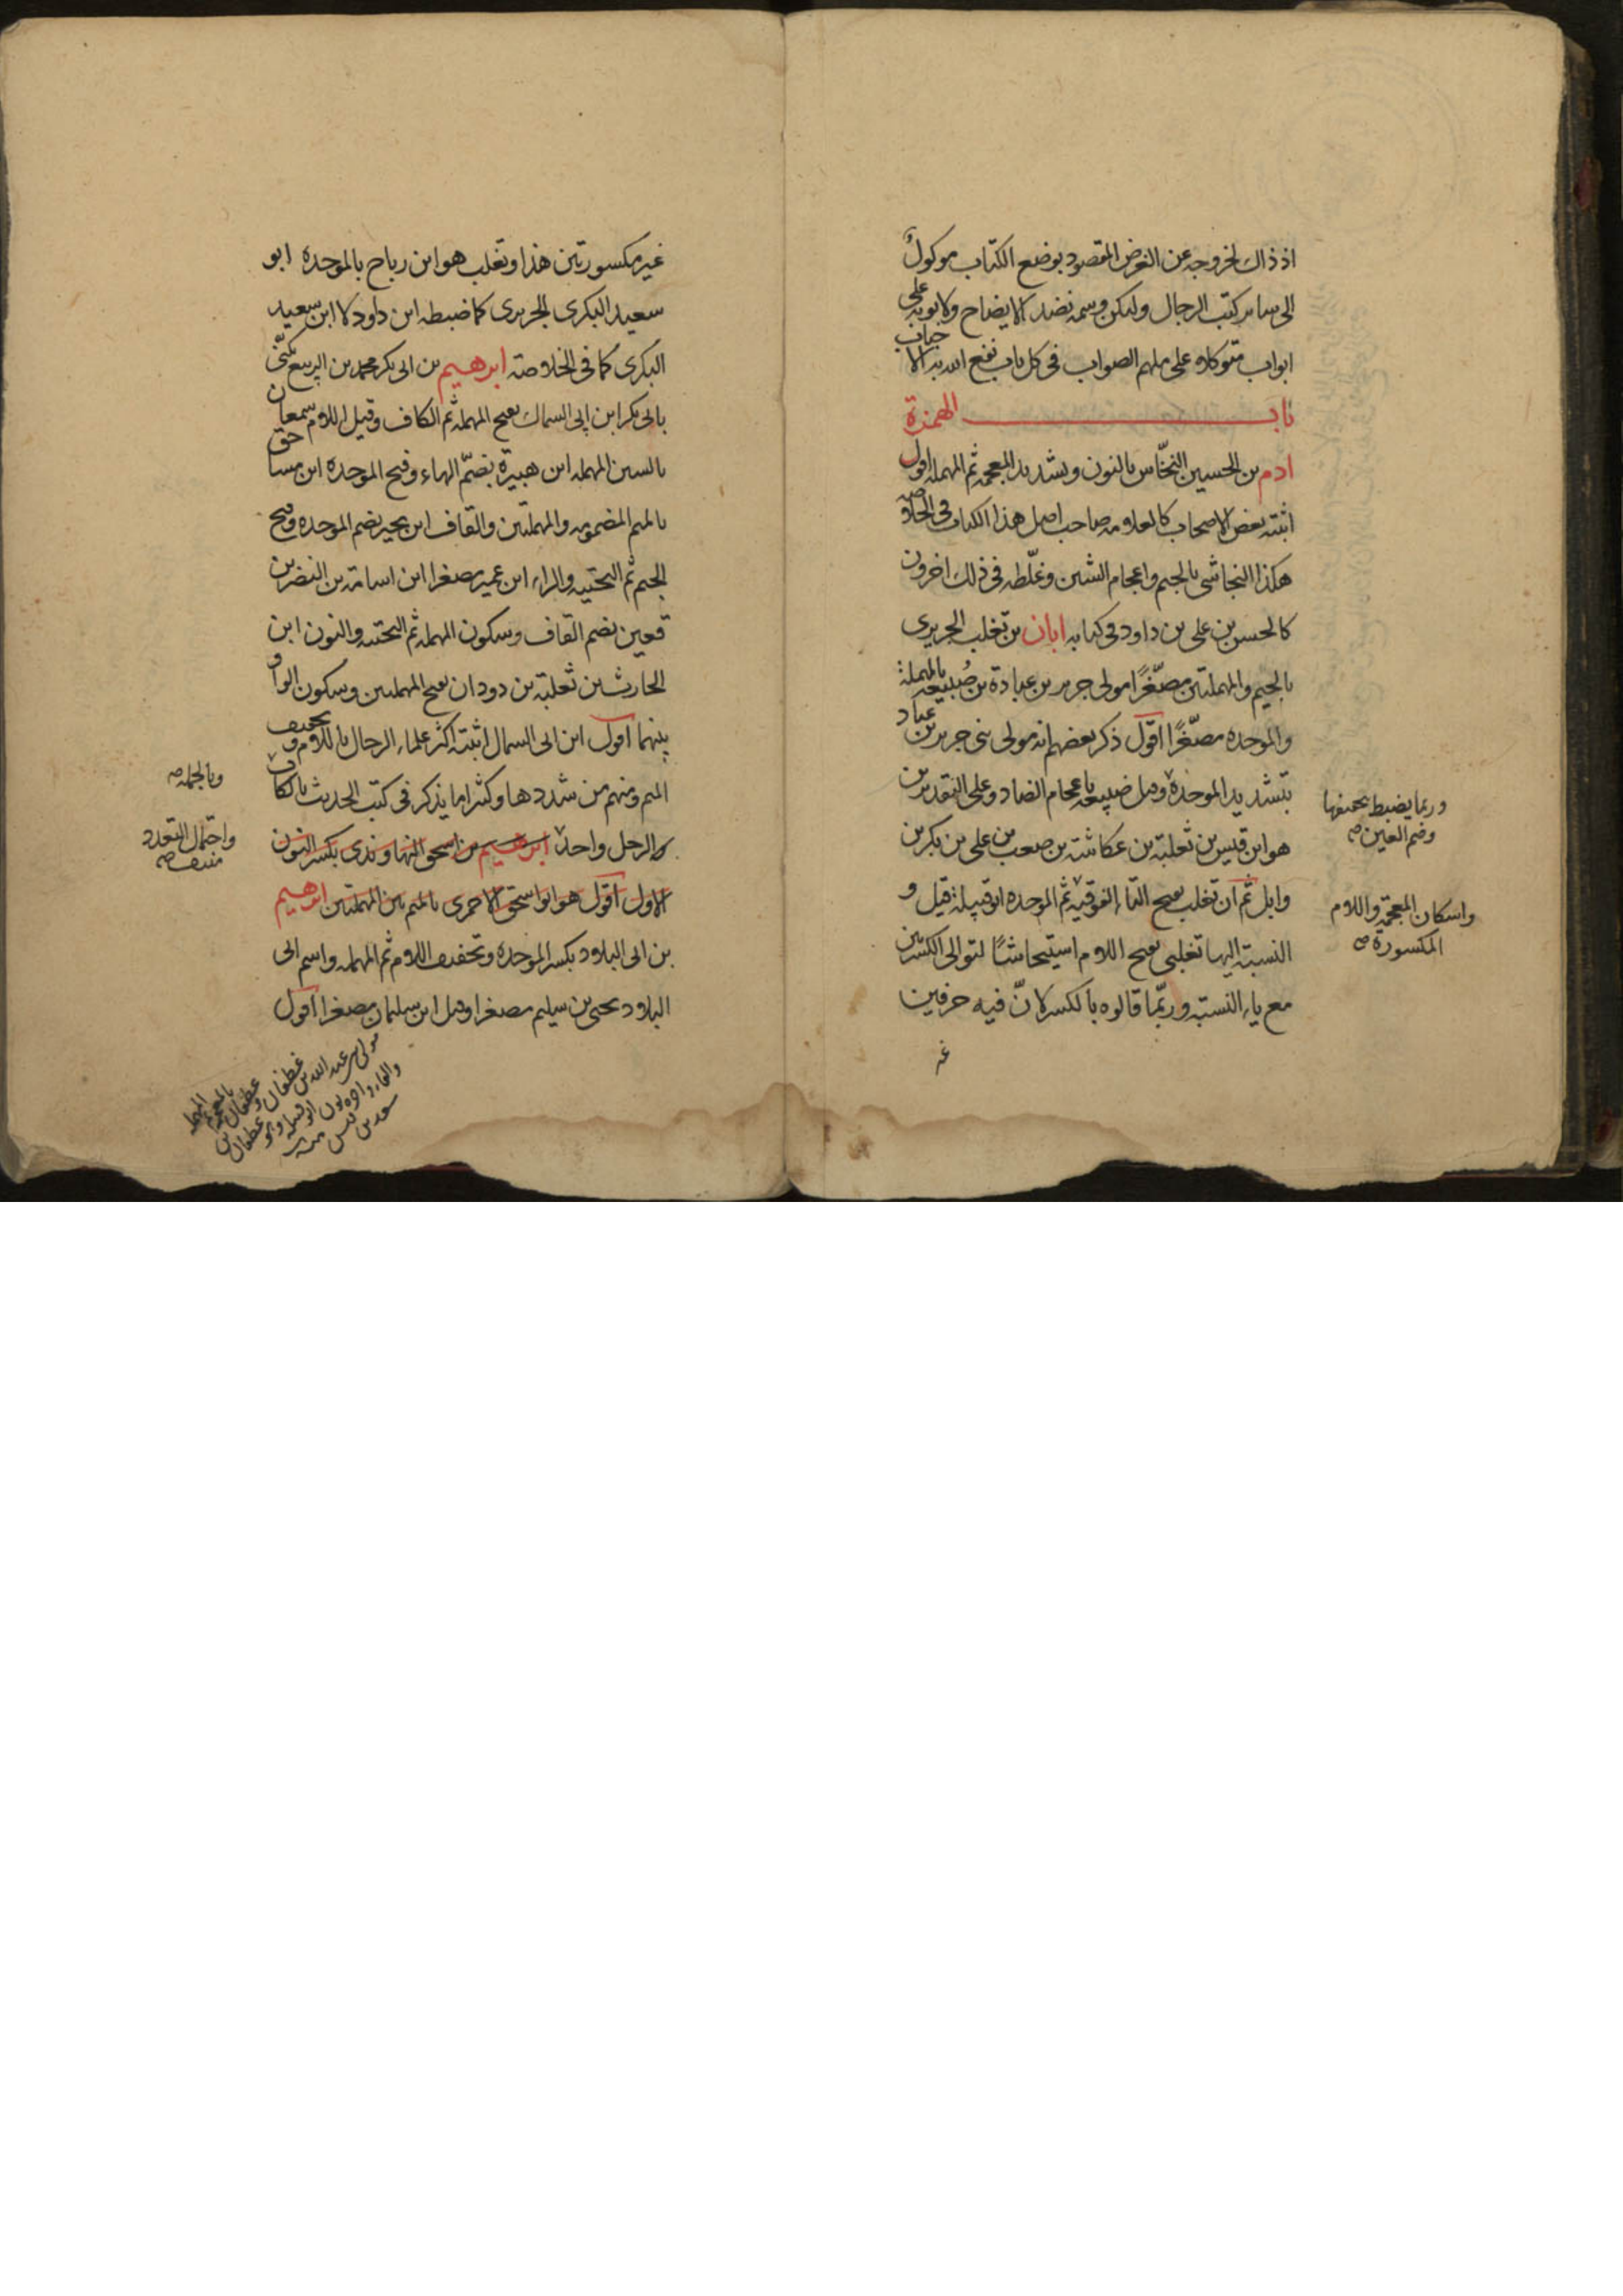 اذ ذاك لخروجه عن الغرض المقصود بوضع الكتاب موكولٌ
الى ساير كتب الرجال وليكن وسمه نضد الايضاح ولابوبه على
ابواب متوكلا على ملهم الصواب فى كل باب نفع الله به الاحباب
باب الهمزة
ادم بن الحسين النخّاس بالنون وتشديد المعجمه ثم المهمله اقول
اثبته بعض الاصحاب كالعلامه صاحب اصل هذا الكتاب فى الخلاصه
هكذا النجاشى بالجيم واعجام الشين وغلّطه فى ذلك اخرون
كالحسن بن على بن داود فى كتابه ابان بن تغلب الجريرى
بالجيم والمهملتين مصغّرًا مولى جرير بن عبادة بن ضُبيعه بالمهملة
والموحده مصغّرًا اقول ذكر بعضهم انه مولى بنى جرير بن عباد
بتشديد الموحدة وقيل ضبيعه باعجام الضاد وعلى التقديرين
هو ابن قيس بن ثعلبة بن عكاشة بن صعب بن على بن بكر بن
وايل ثم ان تغلب بفتح التاء الفوقيه ثم الموحده ابو قبيلة قيل و
النسبة اليها تغلبى بفتح اللام استيحاشًا لتوالى الكسرتين
مع ياء النسبة وربّما قالوه بالكسر لانّ فيه حرفين
غير
وربما يضبط بتخفيفها
وضم العين صح
واسكان المعجمة واللام
المكسورة صح
غير مكسورتين هذا وتغلب هو ابن رباح بالموحده ابو
سعيد البكرى الجريرى كما ضبطه ابن داود لا ابن سعيد
البكرى كما فى الخلاصة ابرهيم بن ابى بكر محمد بن الربيع يكنّى
بابى بكر ابن ابى السماك بفتح المهمله ثم الكاف وقيل اللام سمعان
بالسين المهمله ابن هبيرة بضمّ الهاء وفتح الموحده ابن مساحق
بالميم المضمومه والمهملتين والقاف ابن بجير بضم الموحده وفتح
الجيم ثم التحتيه والراء ابن عمير مصغرا ابن اسامة بن النضر بن
قعين بضم القاف وسكون المهمله ثم التحتيه والنون ابن
الحارث بن ثعلبة بن دودان بفتح المهملتين وسكون الواو
بينهما اقول ابن ابى السمال اثبته اكثر علماء الرجال باللام وتخفيف
الميم ومنهم من شددها وكثيرا ما يذكر فى كتب الحديث بالكاف
والرجل واحد ابرهيم بن اسحق النهاوندى بكسر النون
الاول اقول هو ابو اسحق الاحمرى بالميم بين المهملتين ابرهيم
بن ابى البلاد بكسر الموحده وتخفيف اللام ثم المهمله واسم ابى
البلاد يحيى بن سليم مصغرا وقيل ابن سليمان مصغرا اقول
وبالجمله صح
واحتمال التعدد
منتف صح
مولى بنى عبد الله بن غطفان